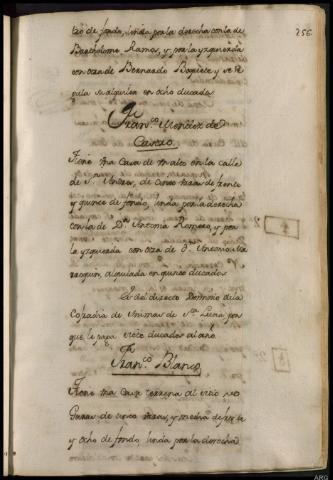 256
tro de fondo, linda por la derecha con la de
Bartholome Ramos, y por la yzquierda
con otra de Bernardo Boquete y se re
gula su alquiler en ocho ducados
Fran.co Mendez de
Castro
Tiene una Casa de en alto en la calle
de S.n Andres, de cinco varas de frente
y quince de fondo, linda por la derecha
con la de D.a Antonia Romero, y por
la yzquierda con otra de D. Antonio
alquilada en quince ducados
Es del directo Dominio de la
Cofradia de Animas de S.ta Lucia por
que le paga ocho ducados al año
Fran.co Blanco
Tiene una Casa terrena al sitio
de cinco varas, y media de frente
y ocho de fondo linda por la derecha
ARG